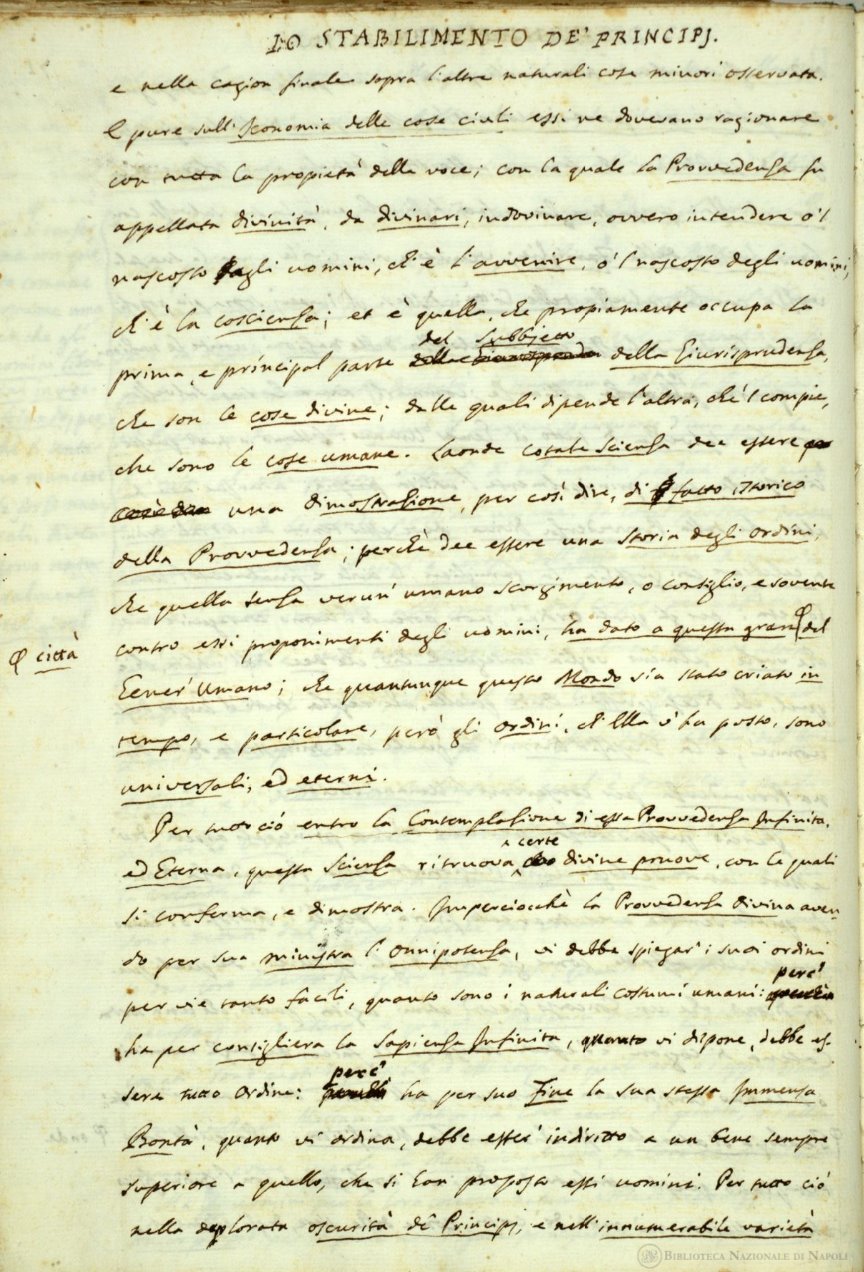 LO STABILIMENTO DE' PRINCIPJ.
e nella cagion finale sopra l'altre naturali cose minori osservata.
E pure sull'Iconomia delle cose civili essi ne dovevano ragionare
con tutta la propietà della voce; con la quale la Provvedenza fu
appellata divinità, da divinari, indovinare, ovvero intendere o 'l
nascosto agli uomini, ch'è l'avvenire, o 'l nascosto degli uomini,
ch'è la coscienza; et è quella, che propiamente occupa la
del Subbjetto
prima, e principal parte della Giurisprudenza,
che son le cose divine; dalle quali dipende l'altra, che 'l compie,
che sono le cose umane. Laonde cotale Scienza dee essere
una dimostrazione, per così dire, di fatto istorico
della Provvedenza; perchè dee essere una Storia degli ordini,
che quella senza verun' umano scorgimento, o consiglio, e sovente
contro essi proponimenti degli uomini, ha dato a questa gran del
città
Gener' Umano; che quantunque questo Mondo sia stato criato in
tempo, e particolare, però gli Ordini, ch'Ella v'ha posto, sono
universali, ed eterni.
Per tutto ciò entro la Contemplazione di essa Provvedenza Infinita,
certe
ed Eterna, questa Scienza ritruova divine pruove, con le quali
si conferma, e dimostra. Imperciocchè la Provvedenza divina aven-
do per sua ministra l'Onnipotenza, vi debbe spiegar' i suoi ordini
per vie tanto facili, quanto sono i naturali costumi umani: perc'
ha per consigliera la Sapienza Infinita, quanto vi dispone, debbe es-
sere tutto Ordine: perc' ha per suo Fine la sua stessa Immensa
Bontà, quanto vi ordina, debbe esser' indiritto a un bene sempre
superiore a quello, che si han proposto essi uomini. Per tutto ciò
nella deplorata oscurità de' Principj, e nell'innumerabile varietà
BIBLIOTECA NAZIONALE DI NAPOLI